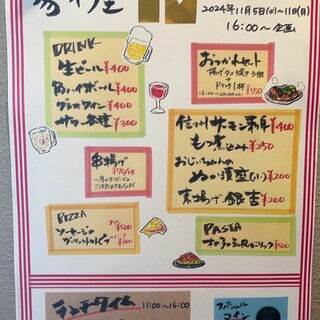 2024年11月5日(火)〜11日(月)
16:00〜 企画
DRINK
生ビール ¥400
角ハイボール ¥400
グラスワイン ¥400
サワー各種 ¥300
おつかれセット
揚げタコ焼き3個
+
ドリンク1杯
¥550
信州サーモン刺身 ¥400
もつ煮込み ¥250
おじいちゃんの
ぬか漬盛(小) ¥200
素揚げ銀杏 ¥200
串揚げ
PIZZA
¥500
ソーセージの
ハーフ ¥300
PASTA
¥500
ランチタイム
11:00〜16:00
スペシャル